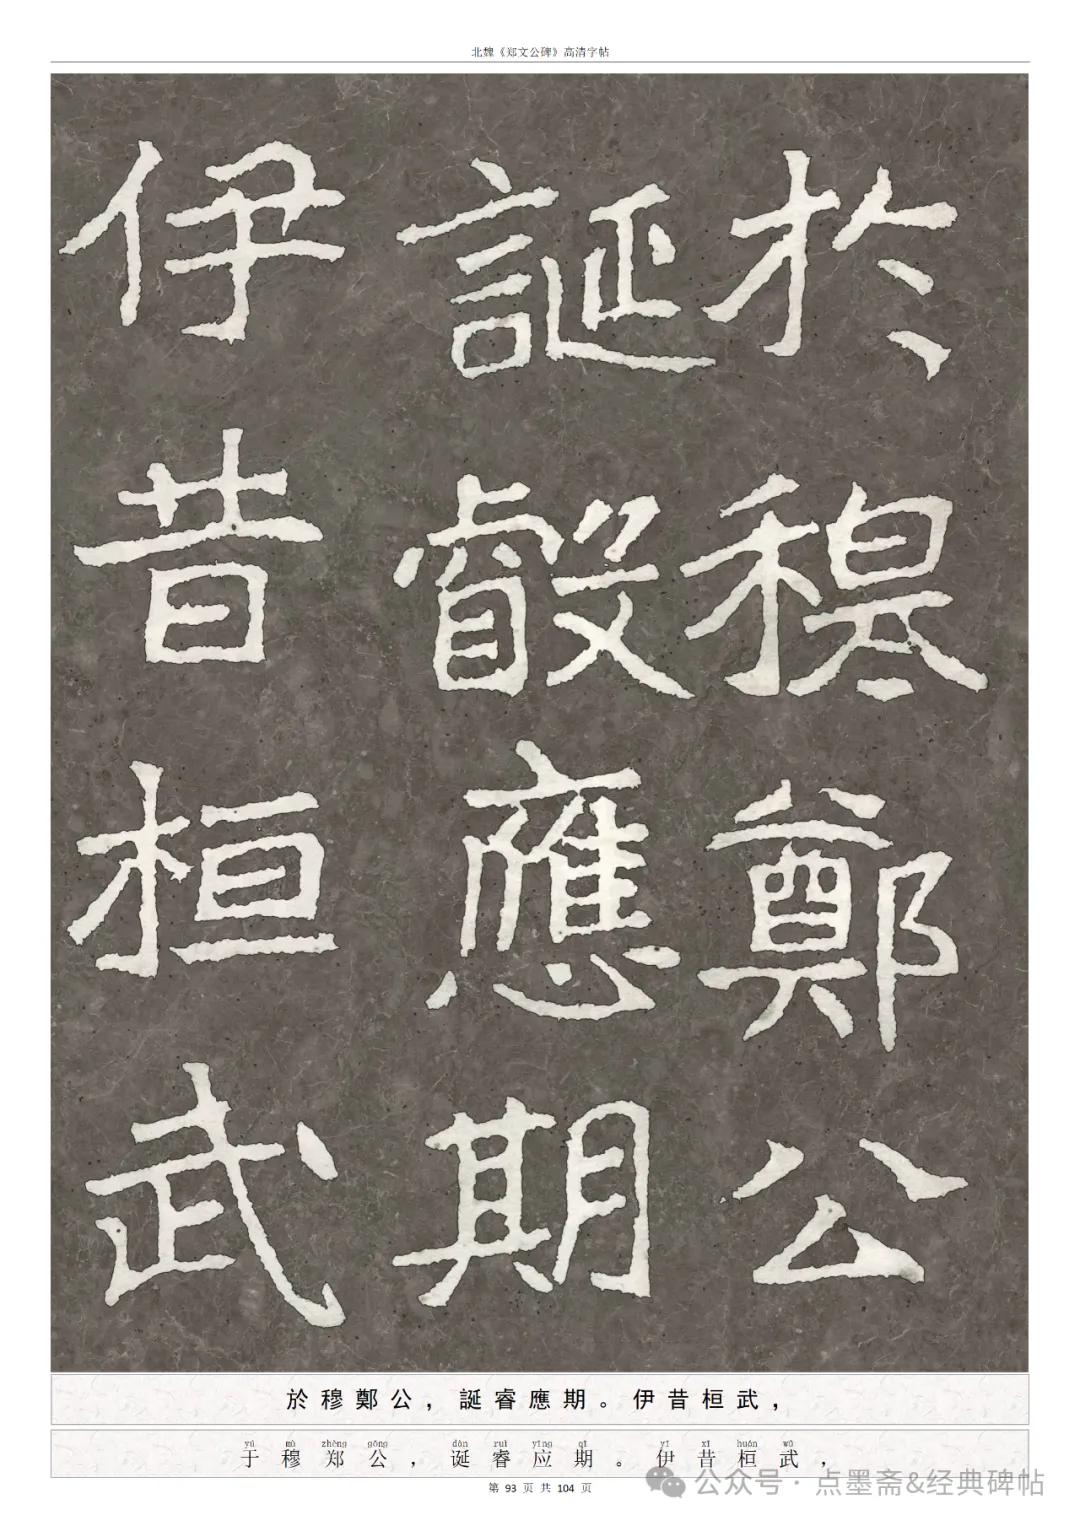 北魏《郑文公碑》高清字帖
於穆鄭公
誕叡應期
伊昔桓武
於穆鄭公，誕睿應期。伊昔桓武，
yú mù zhèng gōng dàn ruì yīng qī yī xī huán wǔ
于穆郑公，诞睿应期。伊昔桓武，
第 93 页 共 104 页
公众号 · 点墨斋&经典碑帖